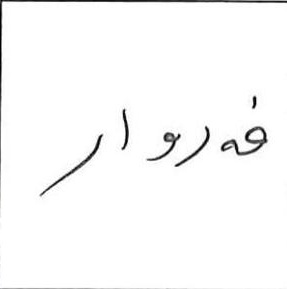 فەروار